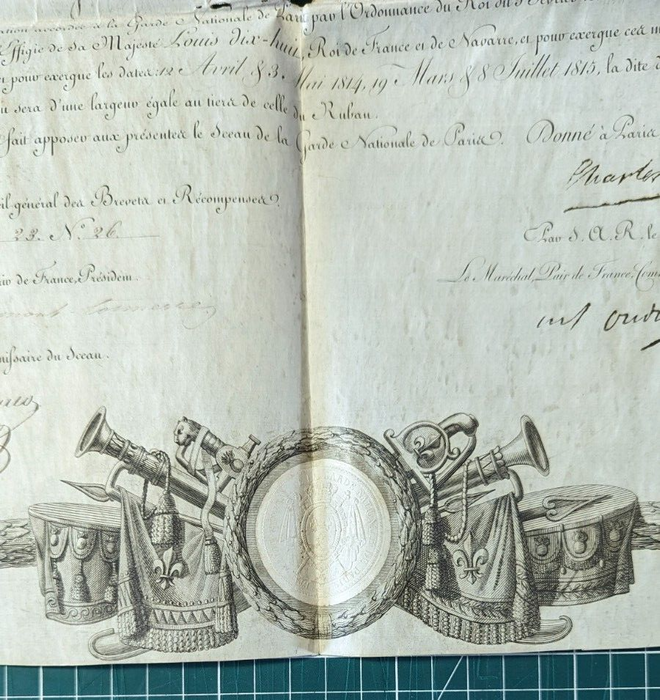 accordée à la Garde Nationale de Paris par l'Ordonnance du Roi du
Effigie de Sa Majesté Louis dix-huit, Roi de France et de Navarre, et pour exergue ces
pour exergue les dates 12 Avril & 3 Mai 1814, 19 Mars & 8 Juillet 1815, la dite
sera d'une largeur égale au tiers de celle du Ruban.
fait apposer aux présentes le Sceau de la Garde Nationale de Paris. Donné à Paris
Charles
général des Brevets et Récompenses.
22. N.º 26.
Par S. A. R. le
de France, Président.
Le Maréchal, Pair de France, Com
oudi
missaire du Sceau.